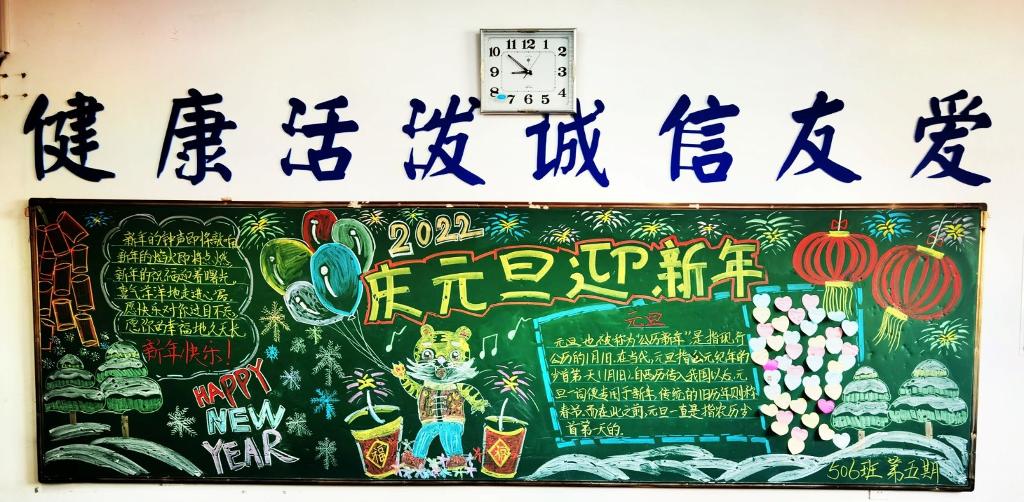 健康活泼诚信友爱
2022
庆元旦迎新年
新年的钟声即将敲响
新年的焰火即将点燃
新年的祝福迎着曙光
喜气洋洋地走进心窝
愿快乐对你过目不忘
愿你的幸福地久天长
新年快乐！
HAPPY
NEW
YEAR
元旦
元旦也被称为"公历新年"是指现行
公历的1月1日.在当代,元旦指公元纪年的
岁首第一天(1月1日).自西历传入我国以后,元
旦一词便专用于新年,传统的旧历年则称
春节.而在此之前,元旦一直是指农历岁
首第一天的.
福
福
506班 第五期
11 12 1
10 2
9 3
8 4
7 6 5